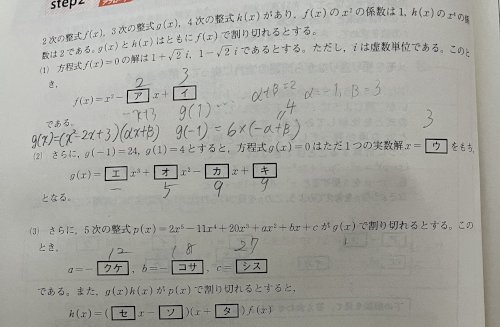 step2
2次の整式f(x), 3次の整式g(x), 4次の整式k(x)があり, f(x)のx²の係数は1, k(x)のx⁴の係
数は2である。g(x)とk(x)はともにf(x)で割り切れるとする。
(1) 方程式f(x)=0の解は1+√2 i, 1−√2 iであるとする。ただし, iは虚数単位である。このと
き,
2 3
f(x)=x²−[ア]x+[イ]
g(1) α+β=2 α=-1, β=3
である。
4
g(x)=(x²-2x+3)(αx+β) g(-1)=6×(-α+β)
3
(2) さらに, g(−1)=24, g(1)=4とすると, 方程式g(x)=0はただ1つの実数解x=[ウ]をもち,
g(x)=[エ]x³+[オ]x²−[カ]x+[キ]
− 5 9 9
となる。
(3) さらに, 5次の整式p(x)=2x⁵−11x⁴+20x³+ax²+bx+cがg(x)で割り切れるとする。この
とき,
12 18 27
a=−[クケ], b=−[コサ], c=[シス]
である。また, g(x)k(x)がp(x)で割り切れるとすると,
k(x)=([セ]x−[ソ])(x+[タ])f(x)